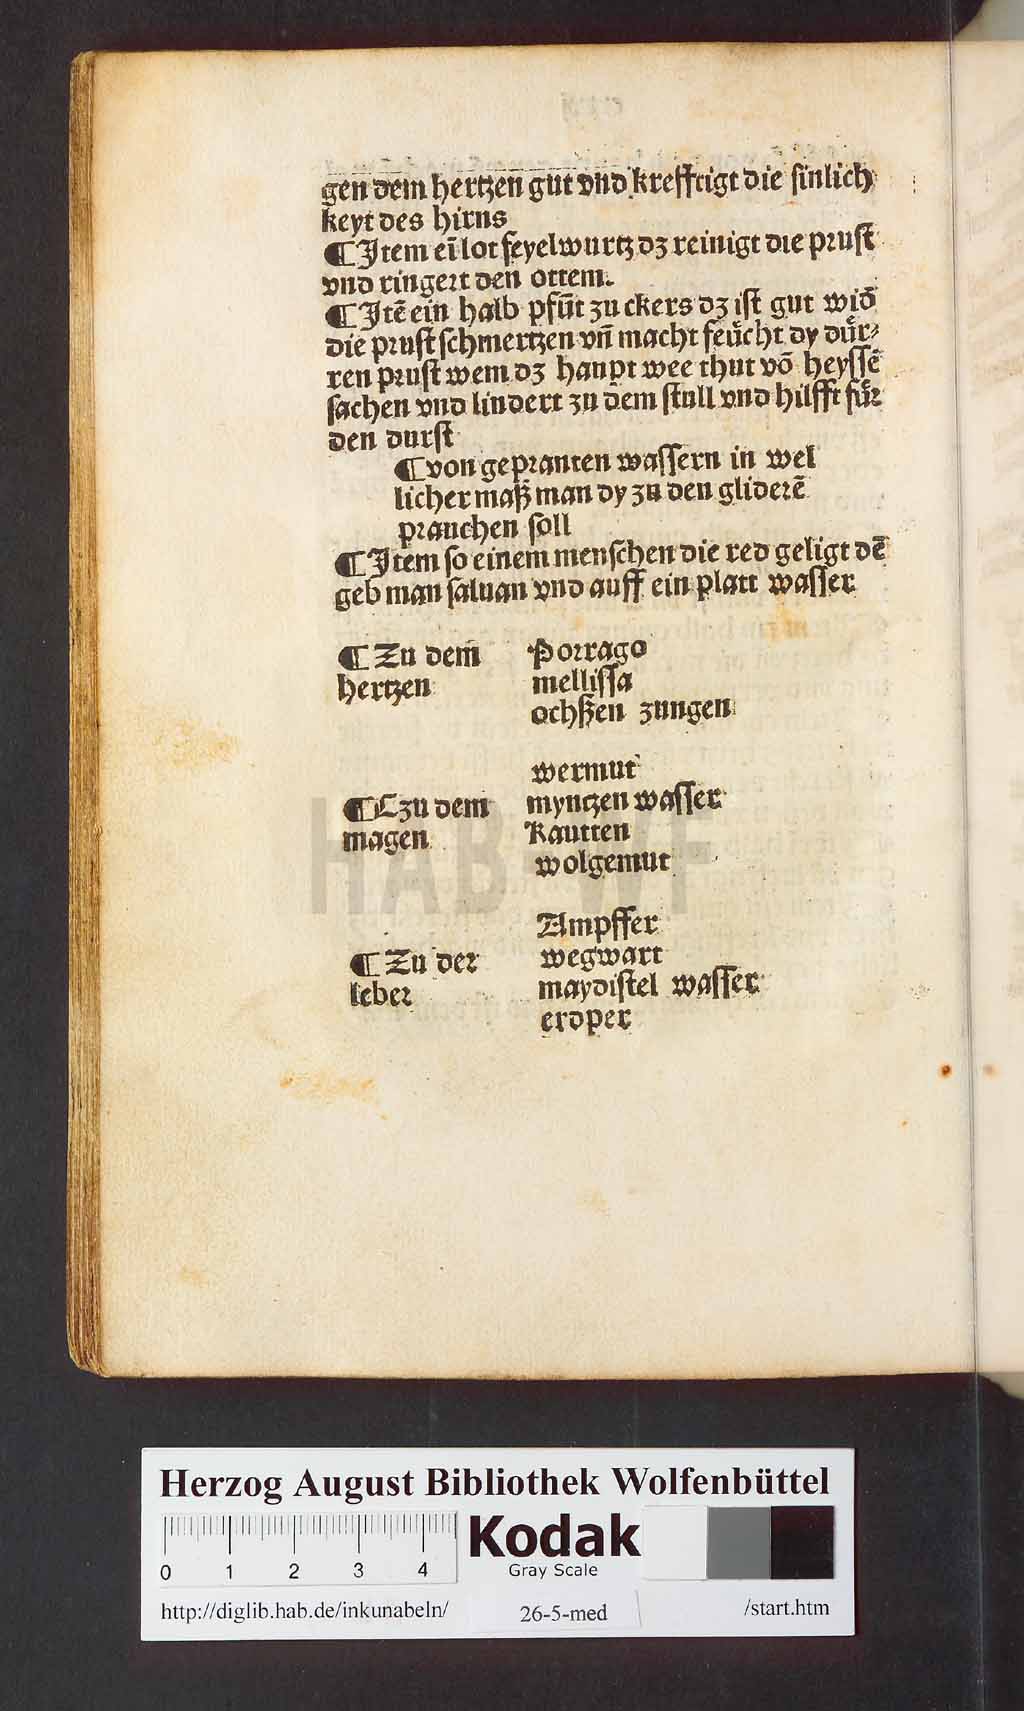 gen dem hertzen gut vnd krefftigt die sinlich
keyt des hirns
¶ Jtem eī lot feyelwurtz dz reinigt die prust
vnd ringert den ottem.
¶ Jtē ein halb pfūt zuckers dz ist gut wid̄
die prust schmertzen vn̄ macht feůcht dy důr⸗
ren prust wem dz haupt wee thut vō heyssē
sachen vnd lindert zu dem stull vnd hilfft fůr
den durst
¶ von gepranten wassern in wel
licher maß man dy zu den gliderē
prauchen soll
¶ Jtem so einem menschen die red geligt dē
geb man saluan vnd auff ein platt wasser
¶ Zu dem Porrago
hertzen mellissa
ochßen zungen
wermut
¶ Czu dem myntzen wasser
magen Rautten
wolgemut
Ampffer
¶ Zu der wegwart
leber maydistel wasser
erdper
HAB-WF
Herzog August Bibliothek Wolfenbüttel
0 1 2 3 4
Kodak
Gray Scale
http://diglib.hab.de/inkunabeln/ 26-5-med /start.htm